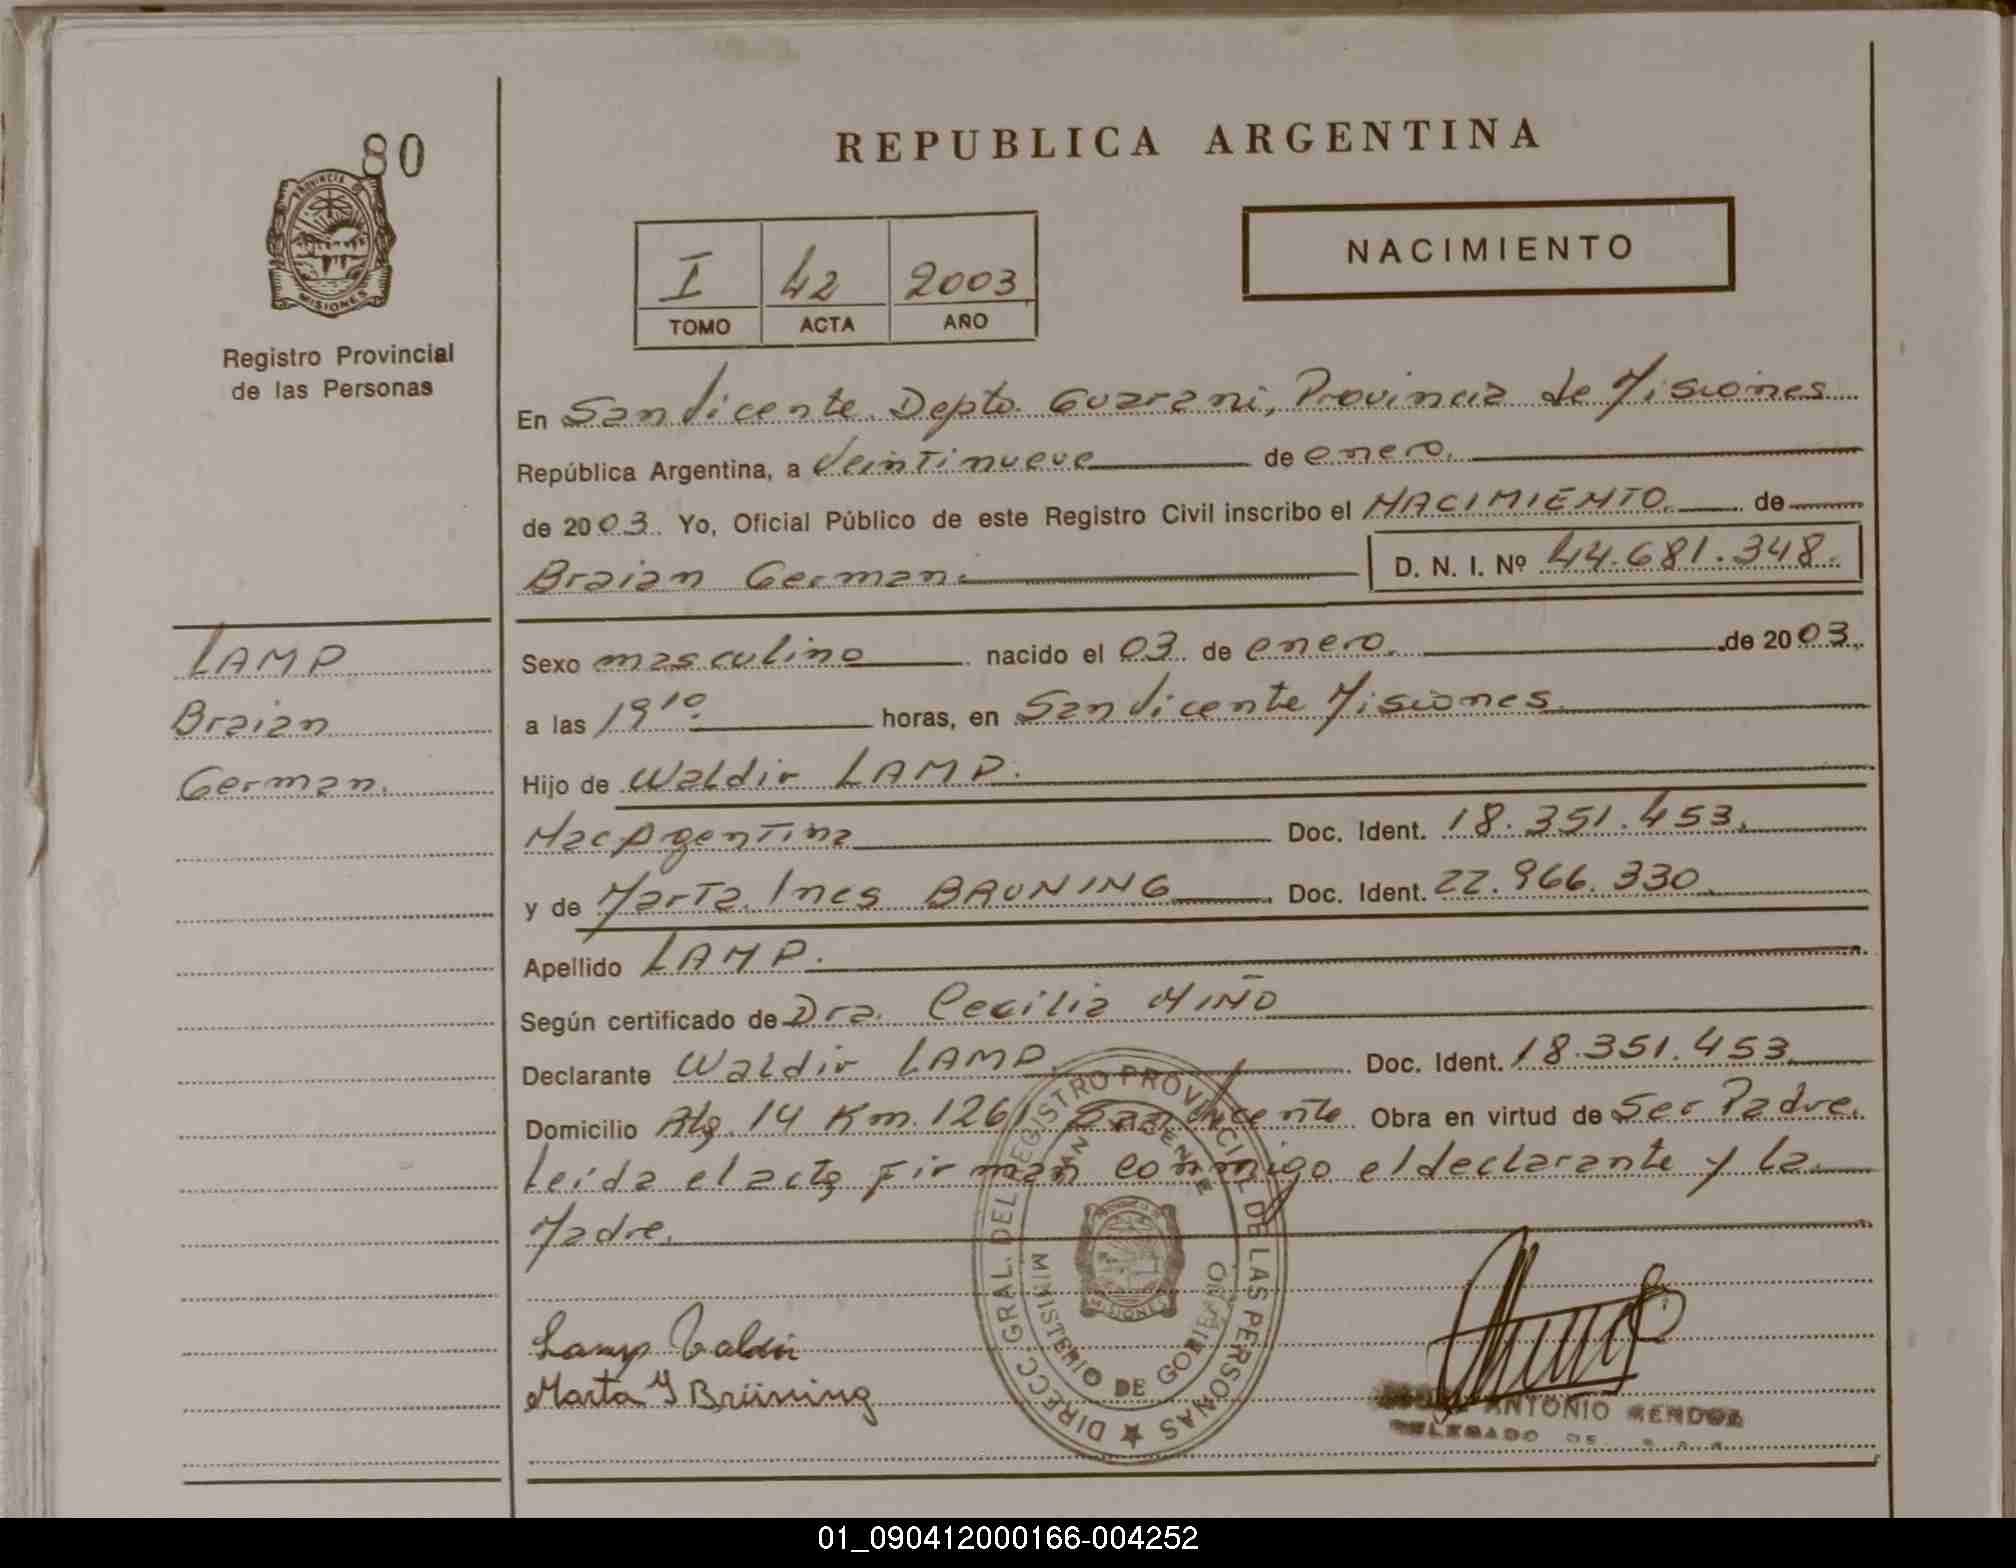 80
PROVINCIA DE
MISIONES
Registro Provincial
de las Personas
REPUBLICA ARGENTINA
I 42 2003
TOMO ACTA AÑO
NACIMIENTO
En San Vicente Depto. Guarani, Provincia de Misiones
República Argentina, a Veintinueve de enero.
de 2003. Yo, Oficial Público de este Registro Civil inscribo el NACIMIENTO. de
Braian German. D. N. I. Nº 44.681.348.
LAMP
Braian
German.
Sexo masculino nacido el 03 de enero. de 2003.
a las 19 10 horas, en San Vicente Misiones.
Hijo de Waldir LAMP.
Nac Agentina Doc. Ident. 18.351.453.
y de Marta Ines BRUNING Doc. Ident. 22.966.330
Apellido LAMP.
Según certificado de Dra. Cecilia MIÑO
Declarante Waldir LAMP. Doc. Ident. 18.351.453
Domicilio Km. 1261 San Vicente Obra en virtud de Ser Padre.
Leida el acta Firman conmigo el declarante y la
Madre.
DIRECC. GRAL. DEL REGISTRO PROVINCIAL DE LAS PERSONAS
SAN VICENTE
MISIONES
MINISTERIO DE GOBIERNO
Lamp Valdir
Marta Y Brüning
ANTONIO MENDOZ
DELEGADO DE
01_090412000166-004252